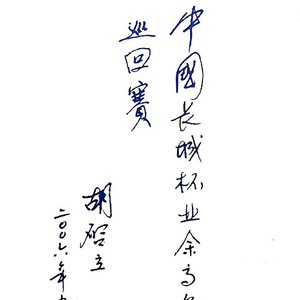 中國长城杯业余高
巡回賽
胡啓立
二〇〇六年